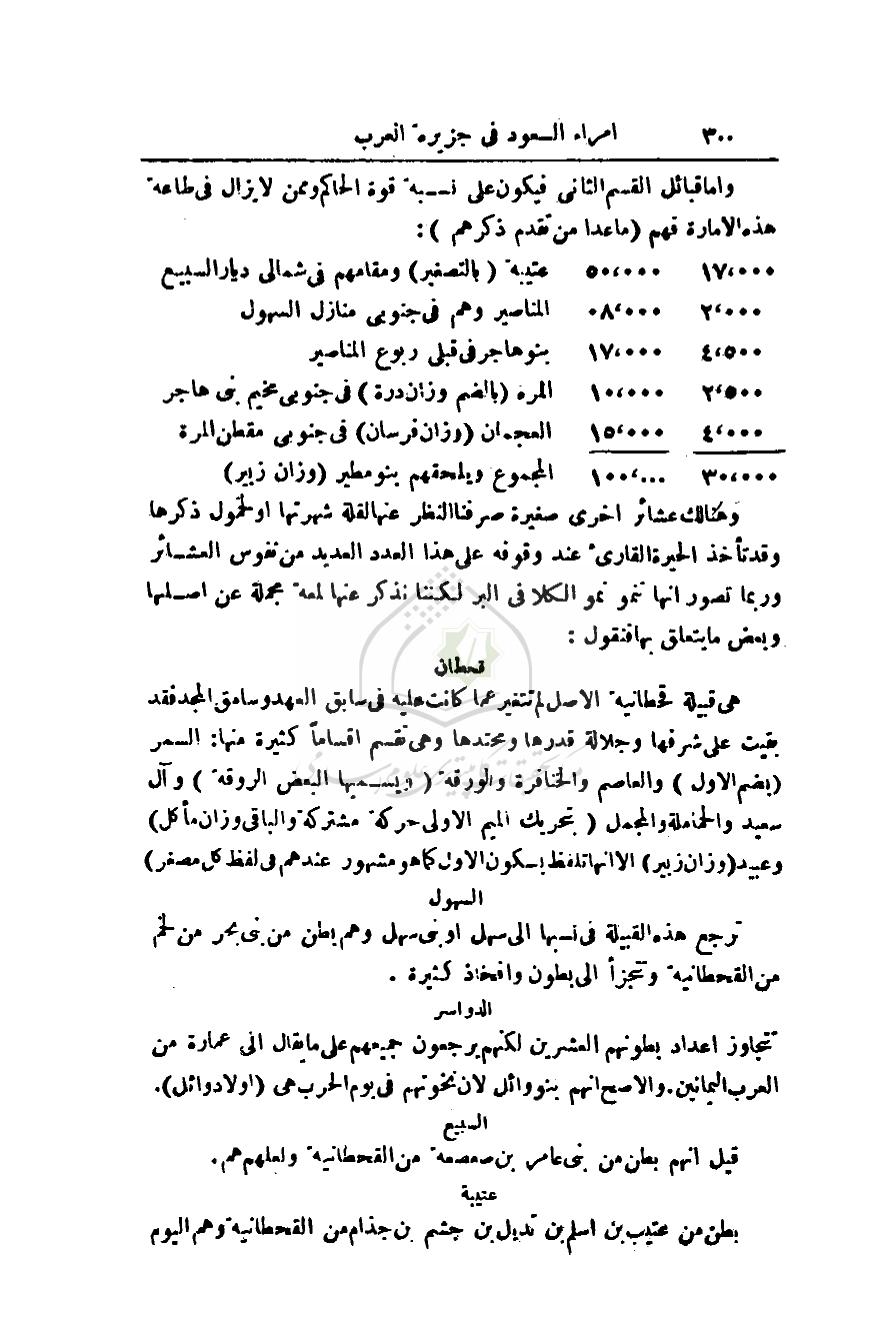 ٣٠٠ امراء السعود فى جزيرة العرب
واما قبائل القسم الثانى فيكون على نسبة قوة الحاكم وممن لا يزال فى طاعة
هذه الامارة فهم (ماعدا من تقدم ذكرهم) :
١٧٬٠٠٠ ٥٠٬٠٠٠ عتيبة (بالتصغير) ومقامهم فى شمالى ديار السبيع
٢٬٠٠٠ ٠٨٬٠٠٠ المناصير وهم فى جنوبى منازل السهول
٤٬٥٠٠ ١٧٬٠٠٠ بنو هاجر فى قبلى ربوع المناصير
٢٬٥٠٠ ١٠٬٠٠٠ المرة (بالضم وزان درة) فى جنوبى مخيم بنى هاجر
٤٬٠٠٠ ١٥٬٠٠٠ العجمان (وزان فرسان) فى جنوبى مقطن المرة
٣٠٬٠٠٠ ١٠٠٬٠٠٠ المجموع ويلحقهم بنو مطير (وزان زبير)
وهنالك عشائر اخرى صغيرة صرفنا النظر عنها لقلة شهرتها او لخمول ذكرها
وقد تأخذ الحيرة القارىء عند وقوفه على هذا العدد العديد من نفوس العشائر
وربما تصور انها تنمو نمو الكلا فى البر لكننا نذكر عنها لمعة مجملة عن اصلها
وبعض ما يتعلق بها فنقول :
قحطان
هى قبيلة قحطانية الاصل لم تتغير عما كانت عليه فى سابق العهد وسامق المجد فقد
بقيت على شرفها وجلالة قدرها ومحتدها وهى تقسم اقساماً كثيرة منها: السمر
(بضم الاول) والعاصم والخنافرة والورقة (ويسميها البعض الروقة) وآل
سعيد والخماملة والمجمل (بتحريك الميم الاولى حركة مشتركة والباقى وزان مأكل)
وعبيد (وزان زبير) الا انها تلفظ بسكون الاول كما هو مشهور عندهم فى لفظ كل مصغر)
السهول
ترجع هذه القبيلة فى نسبها الى سهل او بنى سهل وهم بطن من بنى بحر من لخم
من القحطانية وتتجزأ الى بطون وافخاذ كثيرة .
الدواسر
تتجاوز اعداد بطونهم العشرين لكنهم يرجعون جميعهم على ما يقال الى عمارة من
العرب اليمانين. والاصح انهم بنو وائل لان نخوتهم فى يوم الحرب هى (اولاد وائل).
السبيع
قيل انهم بطن من بنى عامر بن صعصعة من القحطانية ولعلهم هم.
عتيبة
بطن من عتيب بن اسلم بن تديل بن جشم بن جذام من القحطانية وهم اليوم